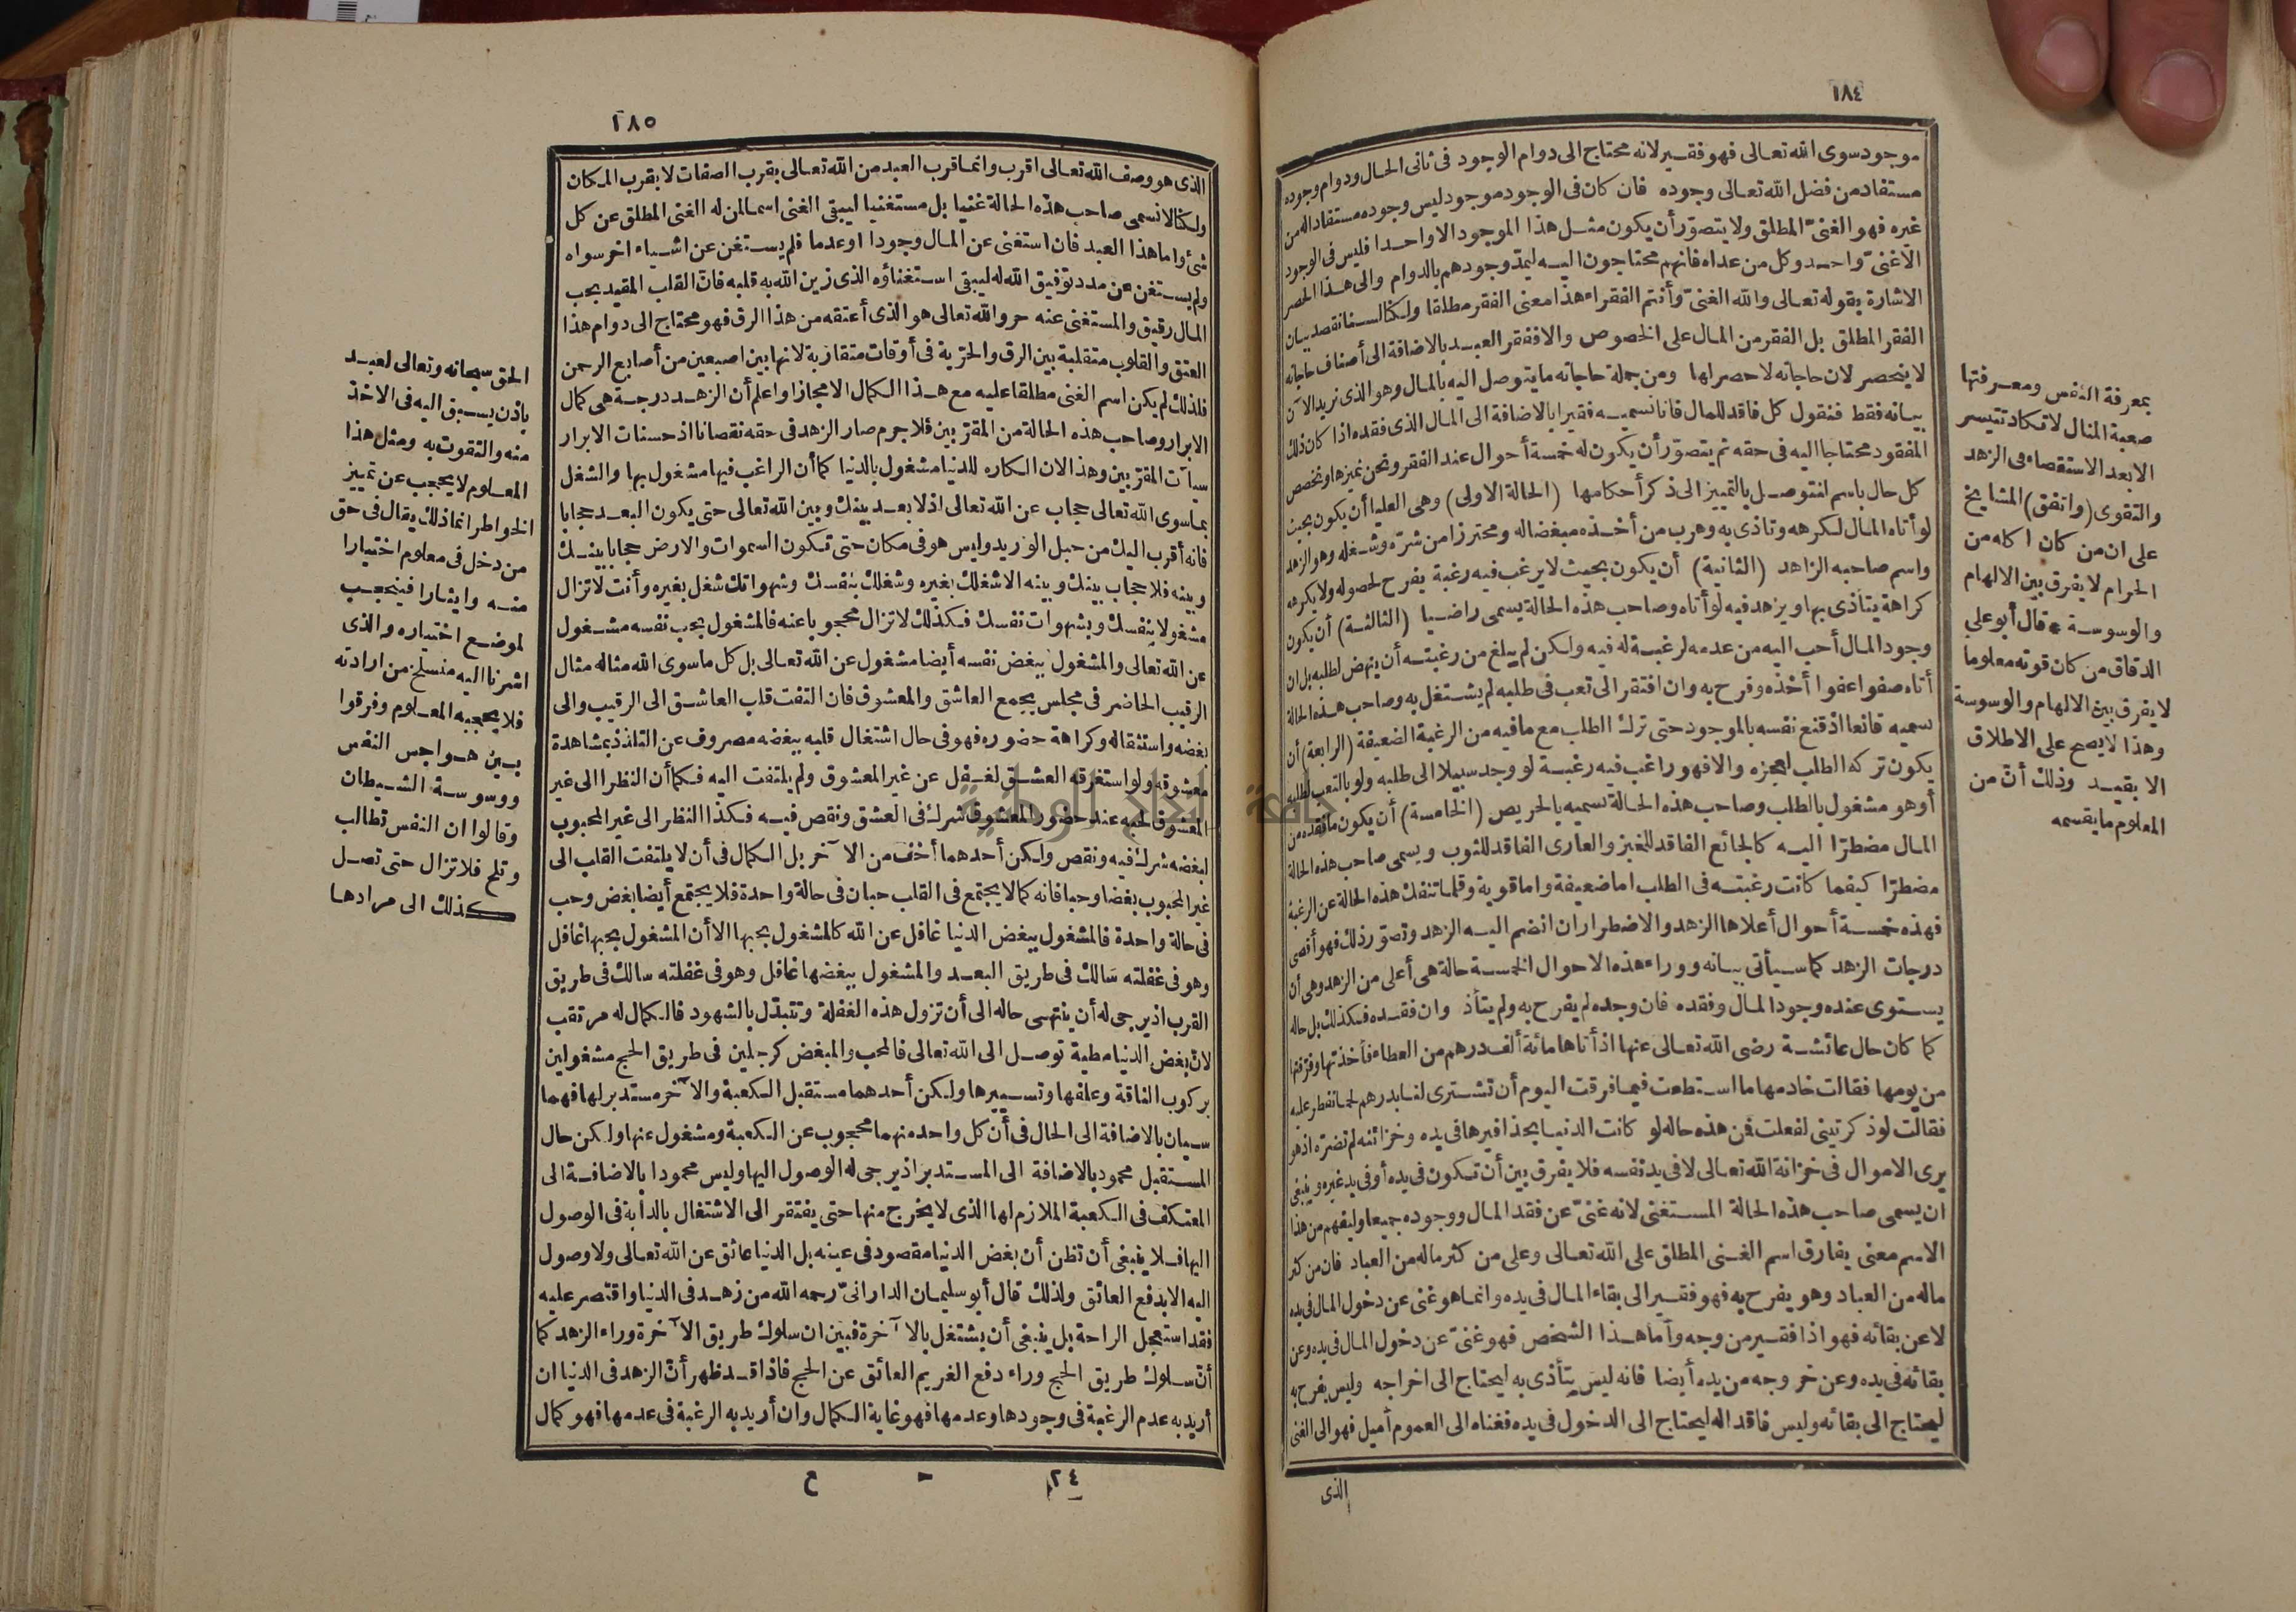 ١٨٤
موجود سوى الله تعالى فهو فقير لانه محتاج الى دوام الوجود فى ثانى الحال ودوام وجوده
مستفاد من فضل الله تعالى وجوده فان كان فى الوجود موجود ليس وجوده مستفادا له من
غيره فهو الغنىّ المطلق ولا يتصوّر أن يكون مثل هذا الموجود الا واحدا فليس فى الوجود
الا غنىّ واحد وكل من عداه فانهم محتاجون اليه ليمدّ وجودهم بالدوام والى هذا الحصر
الاشارة بقوله تعالى والله الغنىّ وأنتم الفقراء هذا معنى الفقر مطلقا ولكنا لسنا نقصد بيان
الفقر المطلق بل الفقر من المال على الخصوص والا ففقر العبد بالاضافة الى أصناف حاجاته
لا ينحصر لان حاجاته لا حصر لها ومن جملة حاجاته ما يتوصل اليه بالمال وهو الذى نريد الآن
بيانه فقط فنقول كل فاقد للمال فانا نسميه فقيرا بالاضافة الى المال الذى فقده اذا كان ذلك
المفقود محتاجا اليه فى حقه ثم يتصوّر أن يكون له خمسة أحوال عند الفقر ونحن نميزها ونخصص
كل حال باسم لنتوصل بالتمييز الى ذكر أحكامها (الحالة الاولى) وهى العليا أن يكون بحيث
لو أتاه المال لكرهه وتاذى به وهرب من أخذه مبغضا له ومحترزا من شرّه وشغله وهو الزهد
واسم صاحبه الزاهد (الثانية) أن يكون بحيث لا يرغب فيه رغبة يفرح لحصوله ولا يكرهه
كراهة يتأذى بها ويزهد فيه لو أتاه وصاحب هذه الحالة يسمى راضيا (الثالثة) أن يكون
وجود المال أحب اليه من عدمه لرغبة له فيه ولكن لم يبلغ من رغبته أن ينهض لطلبه بل ان
أتاه صفوا عفوا أخذه وفرح به وان افتقر الى تعب فى طلبه لم يشتغل به وصاحب هذه الحالة
نسميه قانعا اذ قنع نفسه بالموجود حتى ترك الطلب مع ما فيه من الرغبة الضعيفة (الرابعة) أن
يكون تركه الطلب لعجزه والا فهو راغب فيه رغبة لو وجد سبيلا الى طلبه ولو بالتعب لطلبه
أو هو مشغول بالطلب وصاحب هذه الحالة نسميه بالحريص (الخامسة) أن يكون ما فقده من
المال مضطرّا اليه كالجائع الفاقد للخبز والعارى الفاقد للثوب ويسمى صاحب هذه الحالة
مضطرّا كيفما كانت رغبته فى الطلب اما ضعيفة واما قوية وقلما تنفك هذه الحالة عن الرغبة
فهذه خمسة أحوال أعلاها الزهد والاضطرار ان انضم اليه الزهد وتصوّر ذلك فهو أقصى
درجات الزهد كما سيأتى بيانه ووراء هذه الاحوال الخمسة حالة هى أعلى من الزهد وهى أن
يستوى عنده وجود المال وفقده فان وجده لم يفرح به ولم يتأذ وان فقده فكذلك بل حاله
كما كان حال عائشة رضى الله تعالى عنها اذ أتاها مائة ألف درهم من العطاء فأخذتها وفرّقتها
من يومها فقالت خادمها ما استطعت فيما فرقت اليوم أن تشترى لنا بدرهم لحما نفطر عليه
فقالت لو ذكرتينى لفعلت فمن هذه حاله لو كانت الدنيا بحذافيرها فى يده وخزائنه لم تضرّه اذ هو
يرى الاموال فى خزانة الله تعالى لا فى يد نفسه فلا يفرق بين أن تكون فى يده أو فى يد غيره وينبغى
ان يسمى صاحب هذه الحالة المستغنى لانه غنىّ عن فقد المال ووجوده جميعا وليفهم من هذا
الاسم معنى يفارق اسم الغنى المطلق على الله تعالى وعلى من كثر ماله من العباد فان من كثر
ماله من العباد وهو يفرح به فهو فقير الى بقاء المال فى يده وانما هو غنى عن دخول المال فى يده
لا عن بقائه فهو اذا فقير من وجه وأما هذا الشخص فهو غنىّ عن دخول المال فى يده وعن
بقائه فى يده وعن خروجه من يده أيضا فانه ليس يتأذى به ليحتاج الى اخراجه وليس يفرح به
ليحتاج الى بقائه وليس فاقدا له ليحتاج الى الدخول فى يده فغناه الى العموم أميل فهو الى الغنى
الذى
بمعرفة النفس ومعرفتها
صعبة المنال لا تكاد تتيسر
الا بعد الاستقصاء فى الزهد
والتقوى (واتفق) المشايخ
على ان من كان اكله من
الحرام لا يفرق بين الالهام
والوسوسة * قال أبو على
الدقاق من كان قوته معلوما
لا يفرق بين الالهام والوسوسة
وهذا لا يصح على الاطلاق
الا بقيد وذلك أنّ من
المعلوم ما يقسمه
١٨٥
الذى هو وصف الله تعالى اقرب وانما قرب العبد من الله تعالى بقرب الصفات لا بقرب المكان
ولكنا لا نسمى صاحب هذه الحالة غنيا بل مستغنيا ليبقى الغنى اسما لمن له الغنى المطلق عن كل
شئ واما هذا العبد فان استغنى عن المال وجودا او عدما فلم يستغن عن اشياء اخر سواه
ولم يستغن عن مدد توفيق الله له ليبقى استغناؤه الذى زين الله به قلبه فانّ القلب المقيد بحب
المال رقيق والمستغنى عنه حر والله تعالى هو الذى أعتقه من هذا الرق فهو محتاج الى دوام هذا
العتق والقلوب متقلبة بين الرق والحرّية فى أوقات متقاربة لانها بين اصبعين من أصابع الرحمن
فلذلك لم يكن اسم الغنى مطلقا عليه مع هذا الكمال الا مجازا واعلم أن الزهد درجة هى كمال
الابرار وصاحب هذه الحالة من المقرّبين فلا جرم صار الزهد فى حقه نقصانا اذ حسنات الابرار
سيآت المقرّبين وهذا لان الكاره للدنيا مشغول بالدنيا كما أن الراغب فيها مشغول بها والشغل
بما سوى الله تعالى حجاب عن الله تعالى اذ لا بعد بينك وبين الله تعالى حتى يكون البعد حجابا
فانه أقرب اليك من حبل الوريد وليس هو فى مكان حتى تكون السموات والارض حجابا بينك
وبينه فلا حجاب بينك وبينه الا شغلك بغيره وشغلك بنفسك وشهواتك شغل بغيره وأنت لا تزال
مشغولا بنفسك وبشهوات نفسك فكذلك لا تزال محجوبا عنه فالمشغول بحب نفسه مشغول
عن الله تعالى والمشغول ببغض نفسه أيضا مشغول عن الله تعالى بل كل ما سوى الله مثاله مثال
الرقيب الحاضر فى مجلس يجمع العاشق والمعشوق فان التفت قلب العاشق الى الرقيب والى
بغضه واستثقاله وكراهة حضوره فهو فى حال اشتغال قلبه ببغضه مصروف عن التلذذ بمشاهدة
معشوقه ولو استغرقه العشق لغفل عن غير المعشوق ولم يلتفت اليه فكما أن النظر الى غير
المعشوق لحبه عند حضور المعشوق شرك فى العشق ونقص فيه فكذا النظر الى غير المحبوب
لبغضه شرك فيه ونقص ولكن أحدهما أخف من الآخر بل الكمال فى أن لا يلتفت القلب الى
غير المحبوب بغضا وحبا فانه كما لا يجتمع فى القلب حبان فى حالة واحدة فلا يجتمع أيضا بغض وحب
فى حالة واحدة فالمشغول ببغض الدنيا غافل عن الله كالمشغول بحبها الا أن المشغول بحبها غافل
وهو فى غفلته سالك فى طريق البعد والمشغول ببغضها غافل وهو فى غفلته سالك فى طريق
القرب اذ يرجى له أن ينتهى حاله الى أن تزول هذه الغفلة وتتبدّل بالشهود فالكمال له مرتقب
لانّ بغض الدنيا مطية توصل الى الله تعالى فالمحب والمبغض كرجلين فى طريق الحج مشغولين
بركوب الناقة وعلفها وتسييرها ولكن أحدهما مستقبل الكعبة والآخر مستدبر لها فهما
سيان بالاضافة الى الحال فى أن كل واحد منهما محجوب عن الكعبة ومشغول عنها ولكن حال
المستقبل محمود بالاضافة الى المستدبر اذ يرجى له الوصول اليها وليس محمودا بالاضافة الى
المعتكف فى الكعبة الملازم لها الذى لا يخرج منها حتى يفتقر الى الاشتغال بالدابة فى الوصول
اليها فلا ينبغى أن تظن أن بغض الدنيا مقصود فى عينه بل الدنيا عائق عن الله تعالى ولا وصول
اليه الا بدفع العائق ولذلك قال أبو سليمان الدارانىّ رحمه الله من زهد فى الدنيا واقتصر عليه
فقد استعجل الراحة بل ينبغى أن يشتغل بالآخرة فبين ان سلوك طريق الآخرة وراء الزهد كما
أنّ سلوك طريق الحج وراء دفع الغريم العائق عن الحج فاذا قد ظهر أنّ الزهد فى الدنيا ان
أريد به عدم الرغبة فى وجودها وعدمها فهو غاية الكمال وان أريد به الرغبة فى عدمها فهو كمال
٢٤ - ح
الحق سبحانه وتعالى لعبد
باذن يسبق اليه فى الاخذ
منه والتقوت به ومثل هذا
المعلوم لا يحجب عن تمييز
الخواطر انما ذلك يقال فى حق
من دخل فى معلوم اختيارا
منه وايثارا فينحجب
لموضع اختياره والذى
اشرنا اليه منسلخ من ارادته
فلا يحجبه المعلوم وفرقوا
بين هواجس النفس
ووسوسة الشيطان
وقالوا ان النفس تطالب
وتلح فلا تزال حتى تصل
كذلك الى مرادها
جامعة النجاح الوطنية